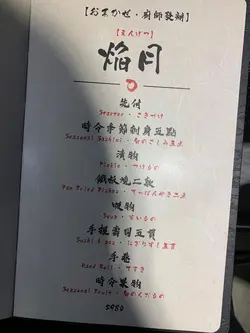 【おまかせ・廚師發辦】
【えんげつ】
焔月
先付
Starter・さきづけ
時令季節刺身五點
Seasonal Sashimi・旬のさしみ五点
漬物
Pickle・つけもの
鐵板燒二款
Pan Fried Dishes・てっぱんやき二款
吸物
Soup・すいもの
手握壽司五貫
Sushi 5 pcs・にぎりずし五貫
手卷
Hand Roll・てまき
時令菓物
Seasonal Fruit・旬のくだもの